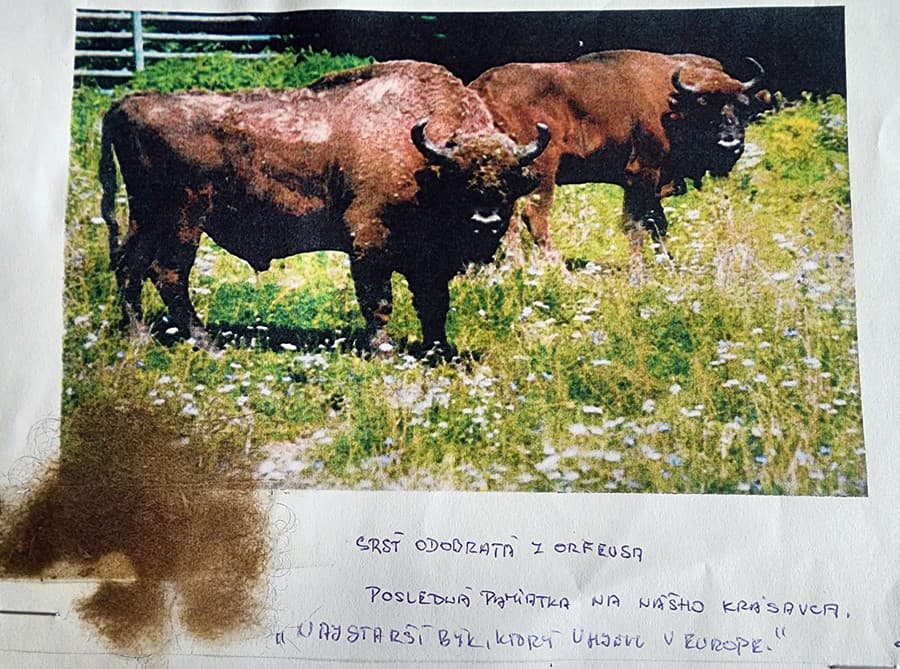 SRSŤ ODOBRATÁ Z ORFEUSA
POSLEDNÁ PAMIATKA NA NÁŠHO KRÁSAVCA.
„NAJSTARŠÍ BÝK, KTORÝ UHYNUL V EURÓPE.“